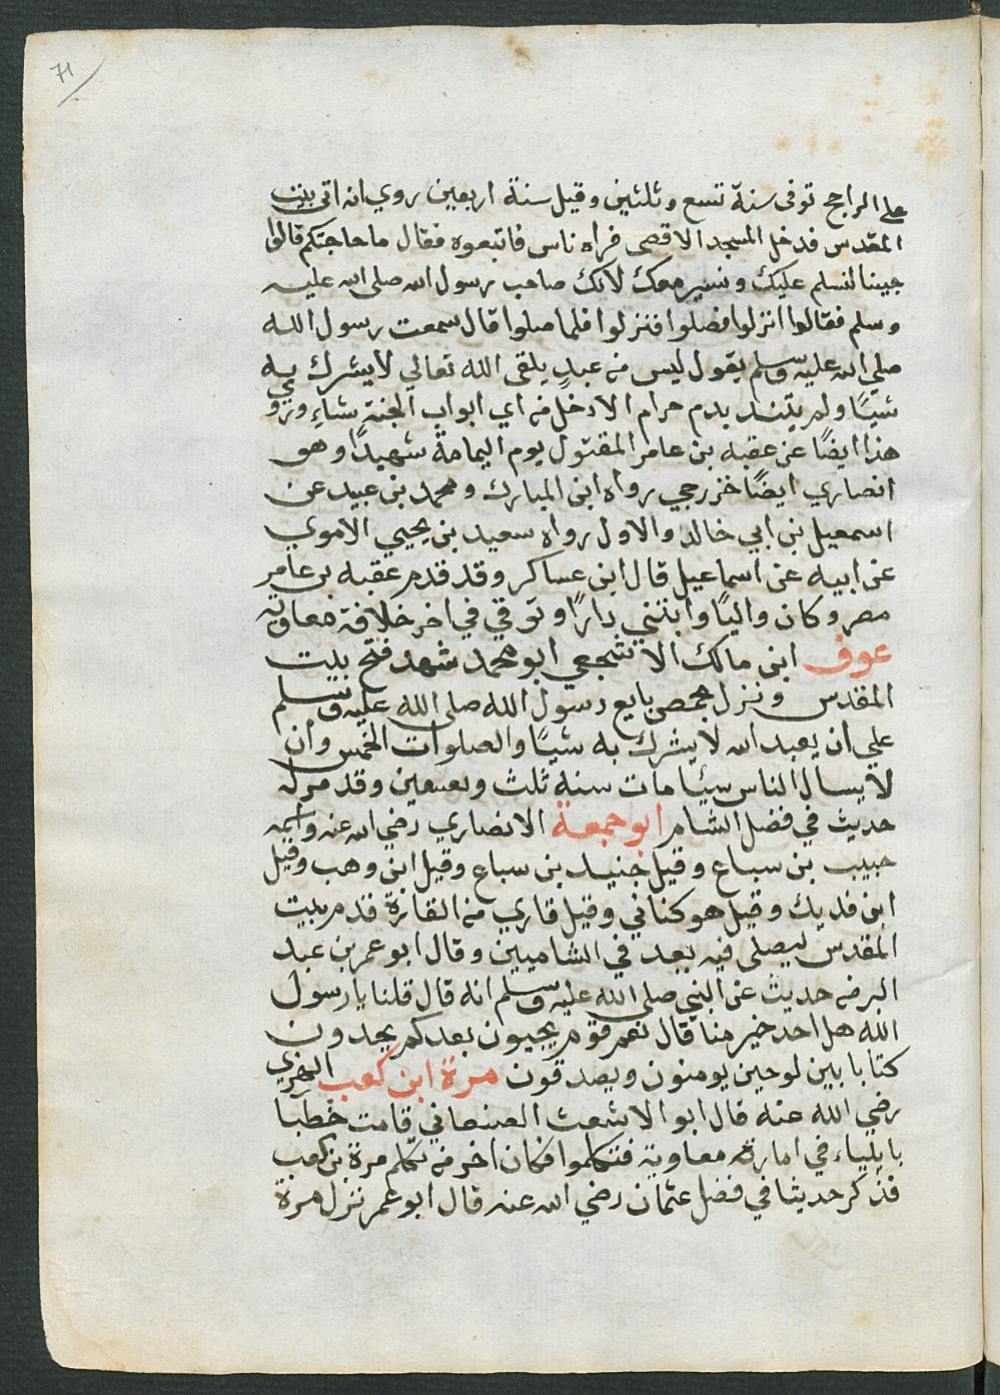 71
على الراجح توفى سنة تسع وثلثين وقيل سنة اربعين روي انه اتى بيت
المقدس فدخل المسجد الاقصى فراه ناس فاتبعوه فقال ما حاجتكم قالوا
جينا لنسلم عليك ونسير معك لانك صاحب رسول الله صلى الله عليه
وسلم فقالوا انزلوا فصلوا فنزلوا فلما صلوا قال سمعت رسول الله
صلى الله عليه وسلم يقول ليس من عبد يلقى الله تعالي لا يشرك به
شيًا ولم يتند بدم حرام الا دخل من اي ابواب الجنة شاء وروي
هذا ايضًا عن عقبه بن عامر المقتول يوم اليمامة شهيدًا وهو
انصاري ايضًا خزرجي رواه ابن المبارك ومحمد بن عبيد عن
اسمعيل بن ابي خالد والاول رواه سعيد بن يحيي الاموي
عن ابيه عن اسماعيل قال ابن عساكر وقد قدم عقبه بن عامر
مصر وكان واليًا وابتني دارًا وتوفي في اخر خلافة معاوية
عوف ابن مالك الاشجعي ابو محمد شهد فتح بيت
المقدس ونزل حمص بايع رسول الله صلى الله عليه وسلم
علي ان يعبد الله لا يشرك به شيًا والصلوات الخمس وان
لا يسال الناس شيًا مات سنة ثلث وسبعين وقد مر له
حديث في فضل الشام ابو جمعة الانصاري رضي الله عنه واسمه
حبيب بن سباع وقيل جنيد بن سباع وقيل ابن وهب وقيل
ابن فديك وقيل هو كناني وقيل قاري من القارة قدم بيت
المقدس ليصلى فيه يعد في الشاميين وقال ابو عمر بن عبد
البر له حديث عن النبي صلى الله عليه وسلم انه قال قلنا يا رسول
الله هل احد خير منا قال نعم قوم يجيون بعدكم يجدون
كتابا بين لوحين يومنون ويصدقون مرة ابن كعب البهزي
رضي الله عنه قال ابو الاشعث الصنعاني قامت خطبا
بايلياء في امارة معاوية فتكلموا فكان اخر من تكلم مرة بن كعب
فذكر حديثا في فضل عثمان رضي الله عنه قال ابو عمر نزل مرة